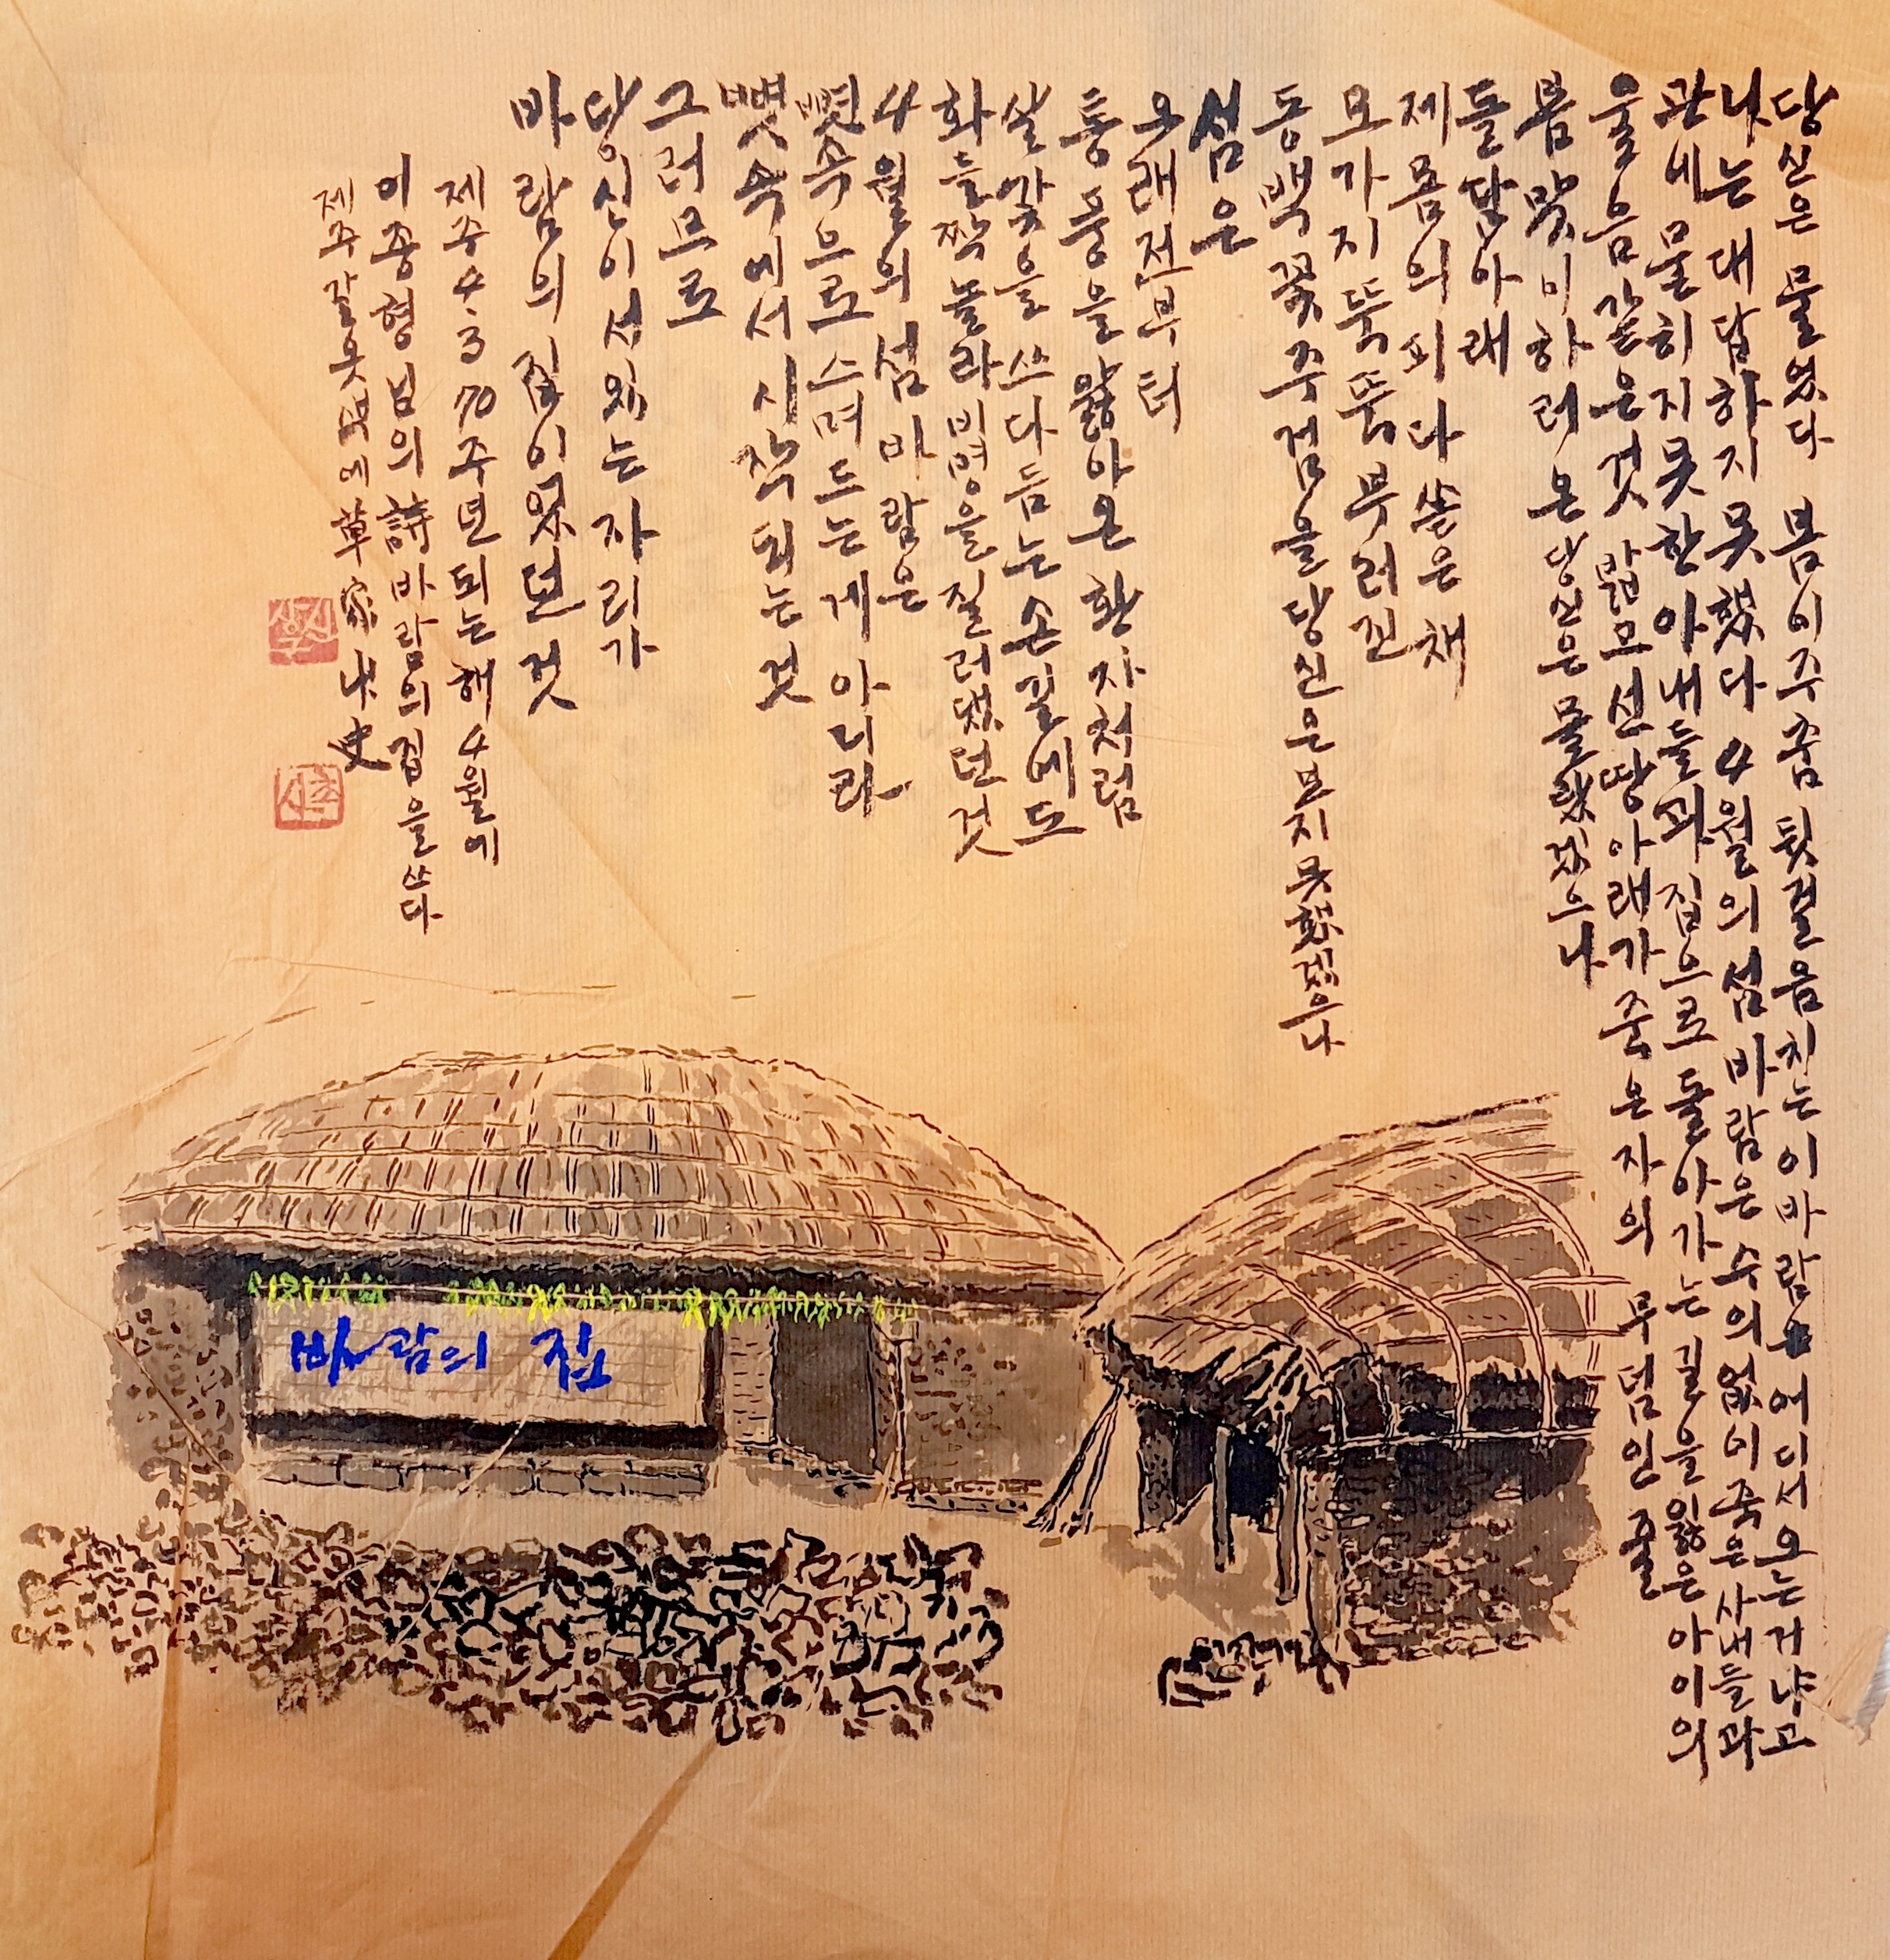 당신은 물었다 봄이 주춤 뒷걸음치는 이 바람 어디서 오는 거냐고
나는 대답하지 못했다 4월의 섬 바람은 수의 없이 죽은 사내들과
관에 묻히지 못한 아내들과 집으로 돌아가는 길을 잃은 아이의
울음 같은 것 밟고 선 땅 아래가 죽은 자의 무덤인 줄
봄맞이하러 온 당신은 몰랐겠으나
돌담 아래
제 몸의 피 다 쏟은 채
모가지 뚝뚝 부러진
동백꽃 주검을 당신은 보지 못했겠으나
섬은
오래전부터
통풍을 앓아온 환자처럼
살갗을 쓰다듬는 손길에도
화들짝 놀라 비명을 질러댔던 것
4월의 섬 바람은
뼛속으로 스며드는 게 아니라
뼛속에서 시작되는 것
그러므로
당신이 서 있는 자리가
바람의 집이었던 것
제주4·3 70주년 되는 해 4월에
이종형님의 詩 바람의 집을 쓰다
제주 갈옷 벽에 草家
바람의 집